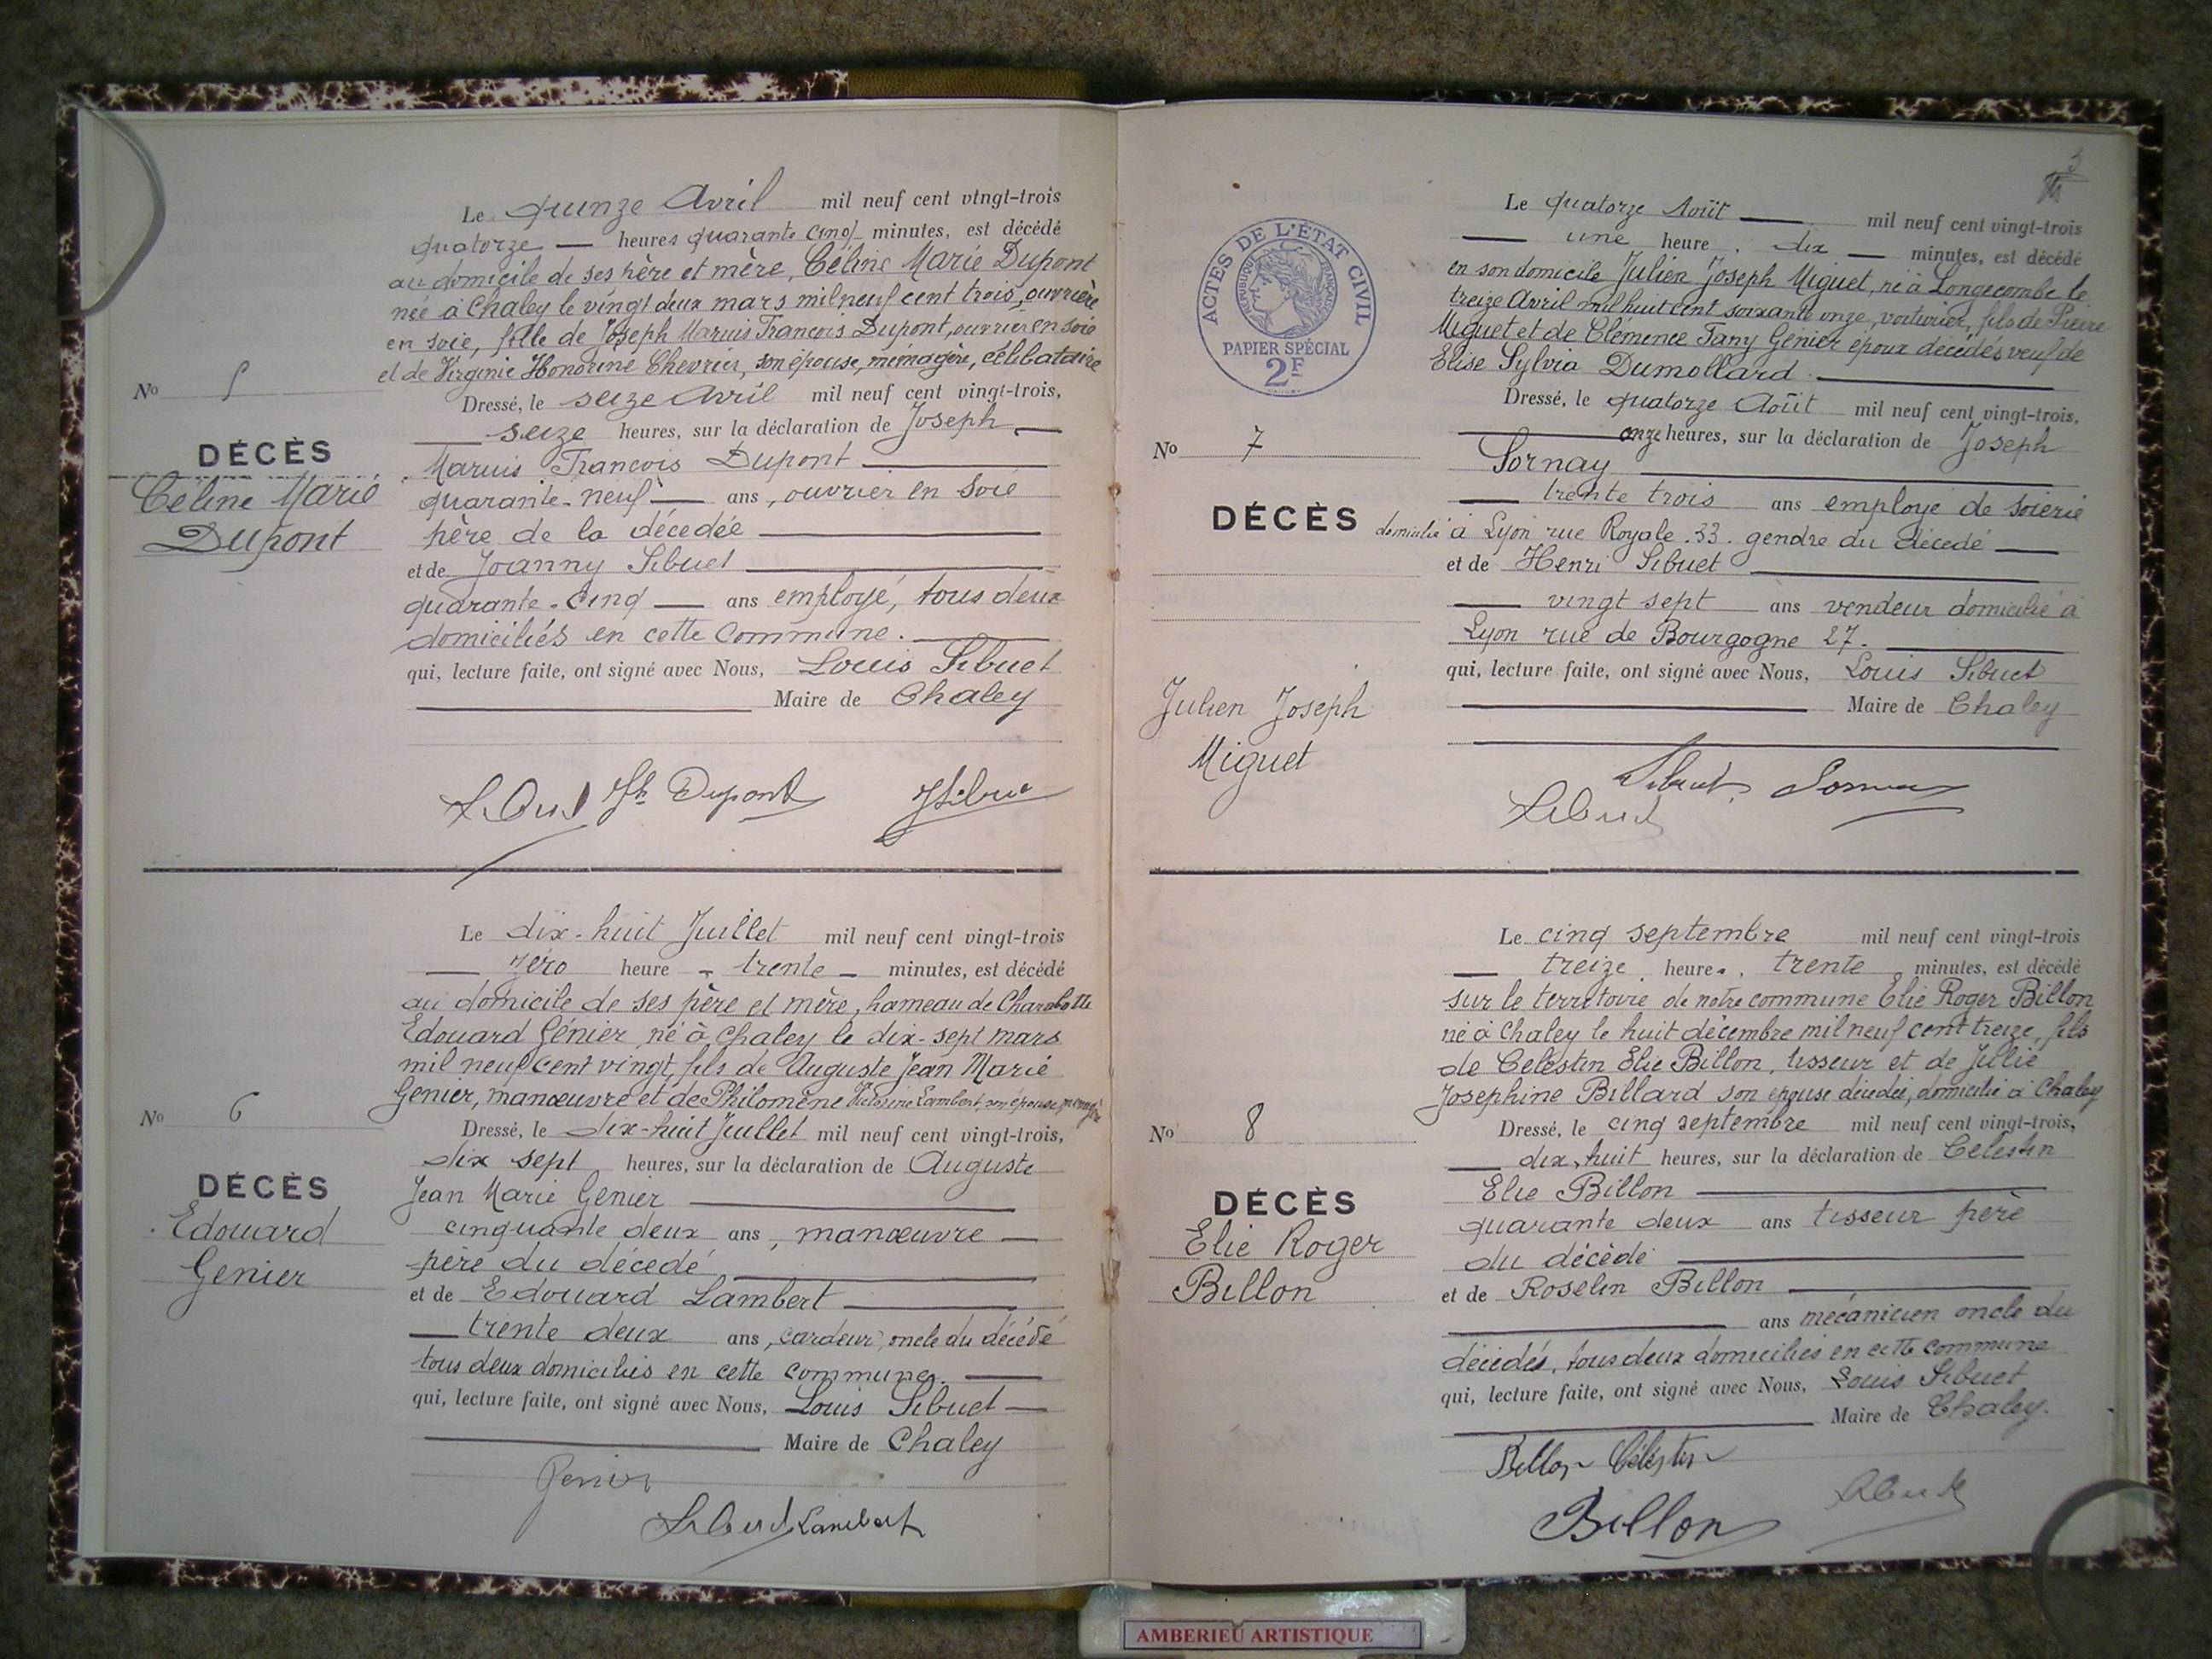 Le quinze Avril mil neuf cent vingt-trois
quatorze — heures quarante cinq minutes, est décédé
au domicile de ses père et mère, Céline Marie Dupont
née à Chaley le vingt deux mars mil neuf cent trois, ouvrière
en soie, fille de Joseph Marius François Dupont, ouvrier en soie
et de Virginie Honorine Chevrier, son épouse, ménagère, célibataire
No 5
Dressé, le seize Avril mil neuf cent vingt-trois,
— seize heures, sur la déclaration de Joseph —
DÉCÈS
Céline Marie
Dupont
Marius François Dupont —
quarante-neuf — ans, ouvrier en soie
père de la décédée —
et de Joanny Sibuet —
quarante-cinq — ans employé, tous deux
domiciliés en cette commune. —
qui, lecture faite, ont signé avec Nous, Louis Sibuet
— Maire de Chaley
Jh Dupont
Le dix-huit Juillet mil neuf cent vingt-trois
— zéro heure - trente - minutes, est décédé
au domicile de ses père et mère, hameau de Charabotte
Edouard Génier né à Chaley le dix-sept mars
mil neuf cent vingt, fils de Auguste Jean Marie
Genier, manœuvre et de Philomène Victorine Lambert, son épouse, ménagère
No 6
Dressé, le dix-huit Juillet mil neuf cent vingt-trois,
dix sept heures, sur la déclaration de Auguste
DÉCÈS
Edouard
Genier
Jean Marie Genier —
cinquante deux ans, manœuvre —
père du décédé —
et de Edouard Lambert —
— trente deux ans, cardeur, oncle du décédé
tous deux domiciliés en cette commune. —
qui, lecture faite, ont signé avec Nous, Louis Sibuet —
— Maire de Chaley
Genier
Lambert
3
ACTES DE L'ÉTAT CIVIL
RÉPUBLIQUE FRANÇAISE
PAPIER SPÉCIAL
2F
Le quatorze Août — mil neuf cent vingt-trois
— une heure . dix — minutes, est décédé
en son domicile Julien Joseph Miguet, né à Longecombe le
treize Avril mil huit cent soixante onze, voiturier, fils de Pierre
Miguet et de Clemence Fany Génier époux décédés veuf de
Elise Sylvia Dumollard —
Dressé, le quatorze Août mil neuf cent vingt-trois,
No 7
— onze heures, sur la déclaration de Joseph
Sornay —
— trente trois ans employé de soierie
DÉCÈS
domicilié à Lyon rue Royale .33. gendre du décédé —
et de Henri Sibuet —
— vingt sept ans vendeur domicilié à
Lyon rue de Bourgogne 27. —
qui, lecture faite, ont signé avec Nous, Louis Sibuet
— Maire de Chaley
Julien Joseph
Miguet
Sibuet
Le cinq septembre mil neuf cent vingt-trois
— treize heures. trente minutes, est décédé
sur le territoire de notre commune Elie Roger Billon
né à Chaley le huit décembre mil neuf cent treize, fils
de Celestin Elie Billon, tisseur et de Jullie
Josephine Billard son épouse décédée, domicilié à Chaley
No 8
Dressé, le cinq septembre mil neuf cent vingt-trois,
— dix, huit heures, sur la déclaration de Célestin
DÉCÈS
Elie Roger
Billon
Elie Billon —
quarante deux ans tisseur père
du décédé —
et de Roselin Billon —
— ans mécanicien oncle du
décédés, tous deux domiciliés en cette commune
qui, lecture faite, ont signé avec Nous, Louis Sibuet
— Maire de Chaley.
Billon Célestin
Billon
AMBERIEU ARTISTIQUE